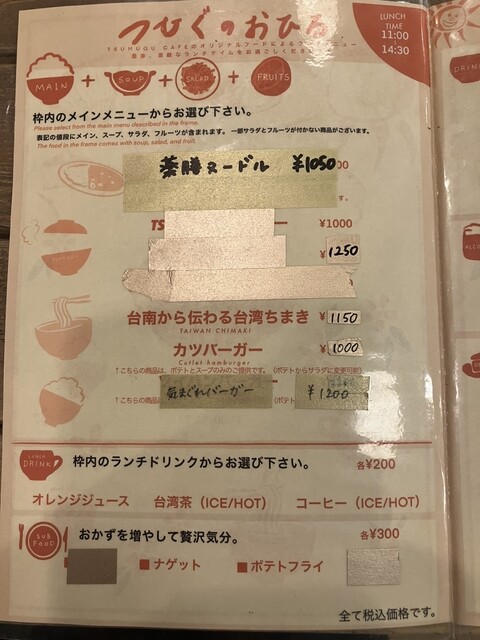 つむぐのおひる
LUNCH TIME
11:00
14:30
MAIN + SOUP + SALAD + FRUITS
枠内のメインメニューからお選び下さい。
Please select from the main menu described in the frame.
表記の値段にメイン、スープ、サラダ、フルーツが含まれます。 一部サラダとフルーツが付かない商品がございます。
The food in the frame comes with soup, salad, and fruit.
薬膳ヌードル ¥1050
¥1000
¥1250
台南から伝わる台湾ちまき ¥1150
TAIWAN CHIMAKI
カツバーガー ¥1000
Cutlet hamburger
↑こちらの商品は、ポテトとスープのみのご提供です。（ポテトからサラダに変更可能）
気まぐれバーガー ¥1200
↑こちらの商品
LUNCH DRINK 枠内のランチドリンクからお選び下さい。 各¥200
オレンジジュース 台湾茶（ICE/HOT） コーヒー（ICE/HOT）
SUB FOOD おかずを増やして贅沢気分。 各¥300
■ナゲット ■ポテトフライ
全て税込価格です。